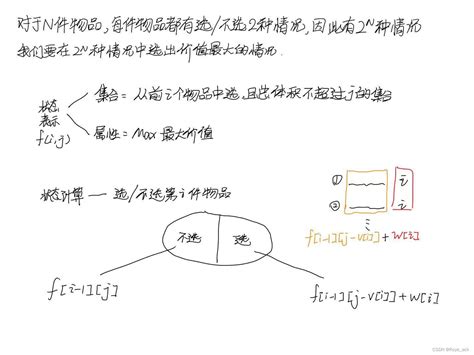 对于N件物品,每件物品都有选/不选2种情况,因此有2^N种情况
我们要在2^N种情况中选出价值最大的情况.
状态表示 f(i,j)
集合=从前i个物品中选,且总体积不超过j的集合
属性=Max 最大价值
状态计算——选/不选第i件物品
不选 选
f[i-1][j]
f[i-1][j-v[i]]+w[i]
① i
② i
f[i-1][j-v[i]]+w[i]